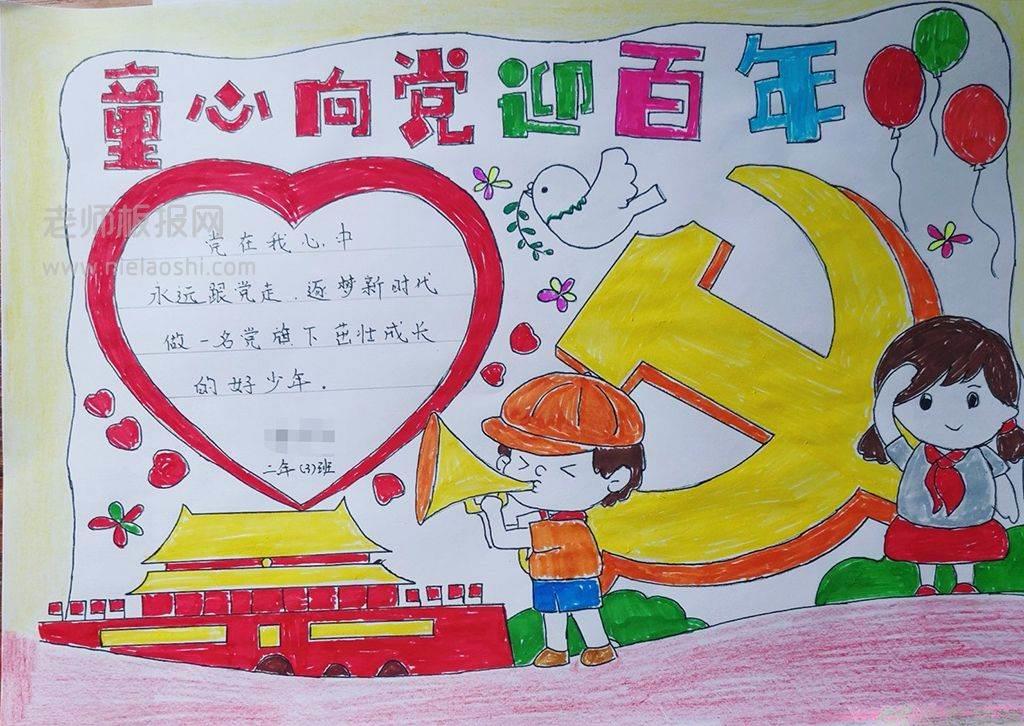 童心向党迎百年
老师板报网
www.nielaoshi.com
党在我心中
永远跟党走、逐梦新时代
做一名党旗下茁壮成长
的好少年.
二年(3)班